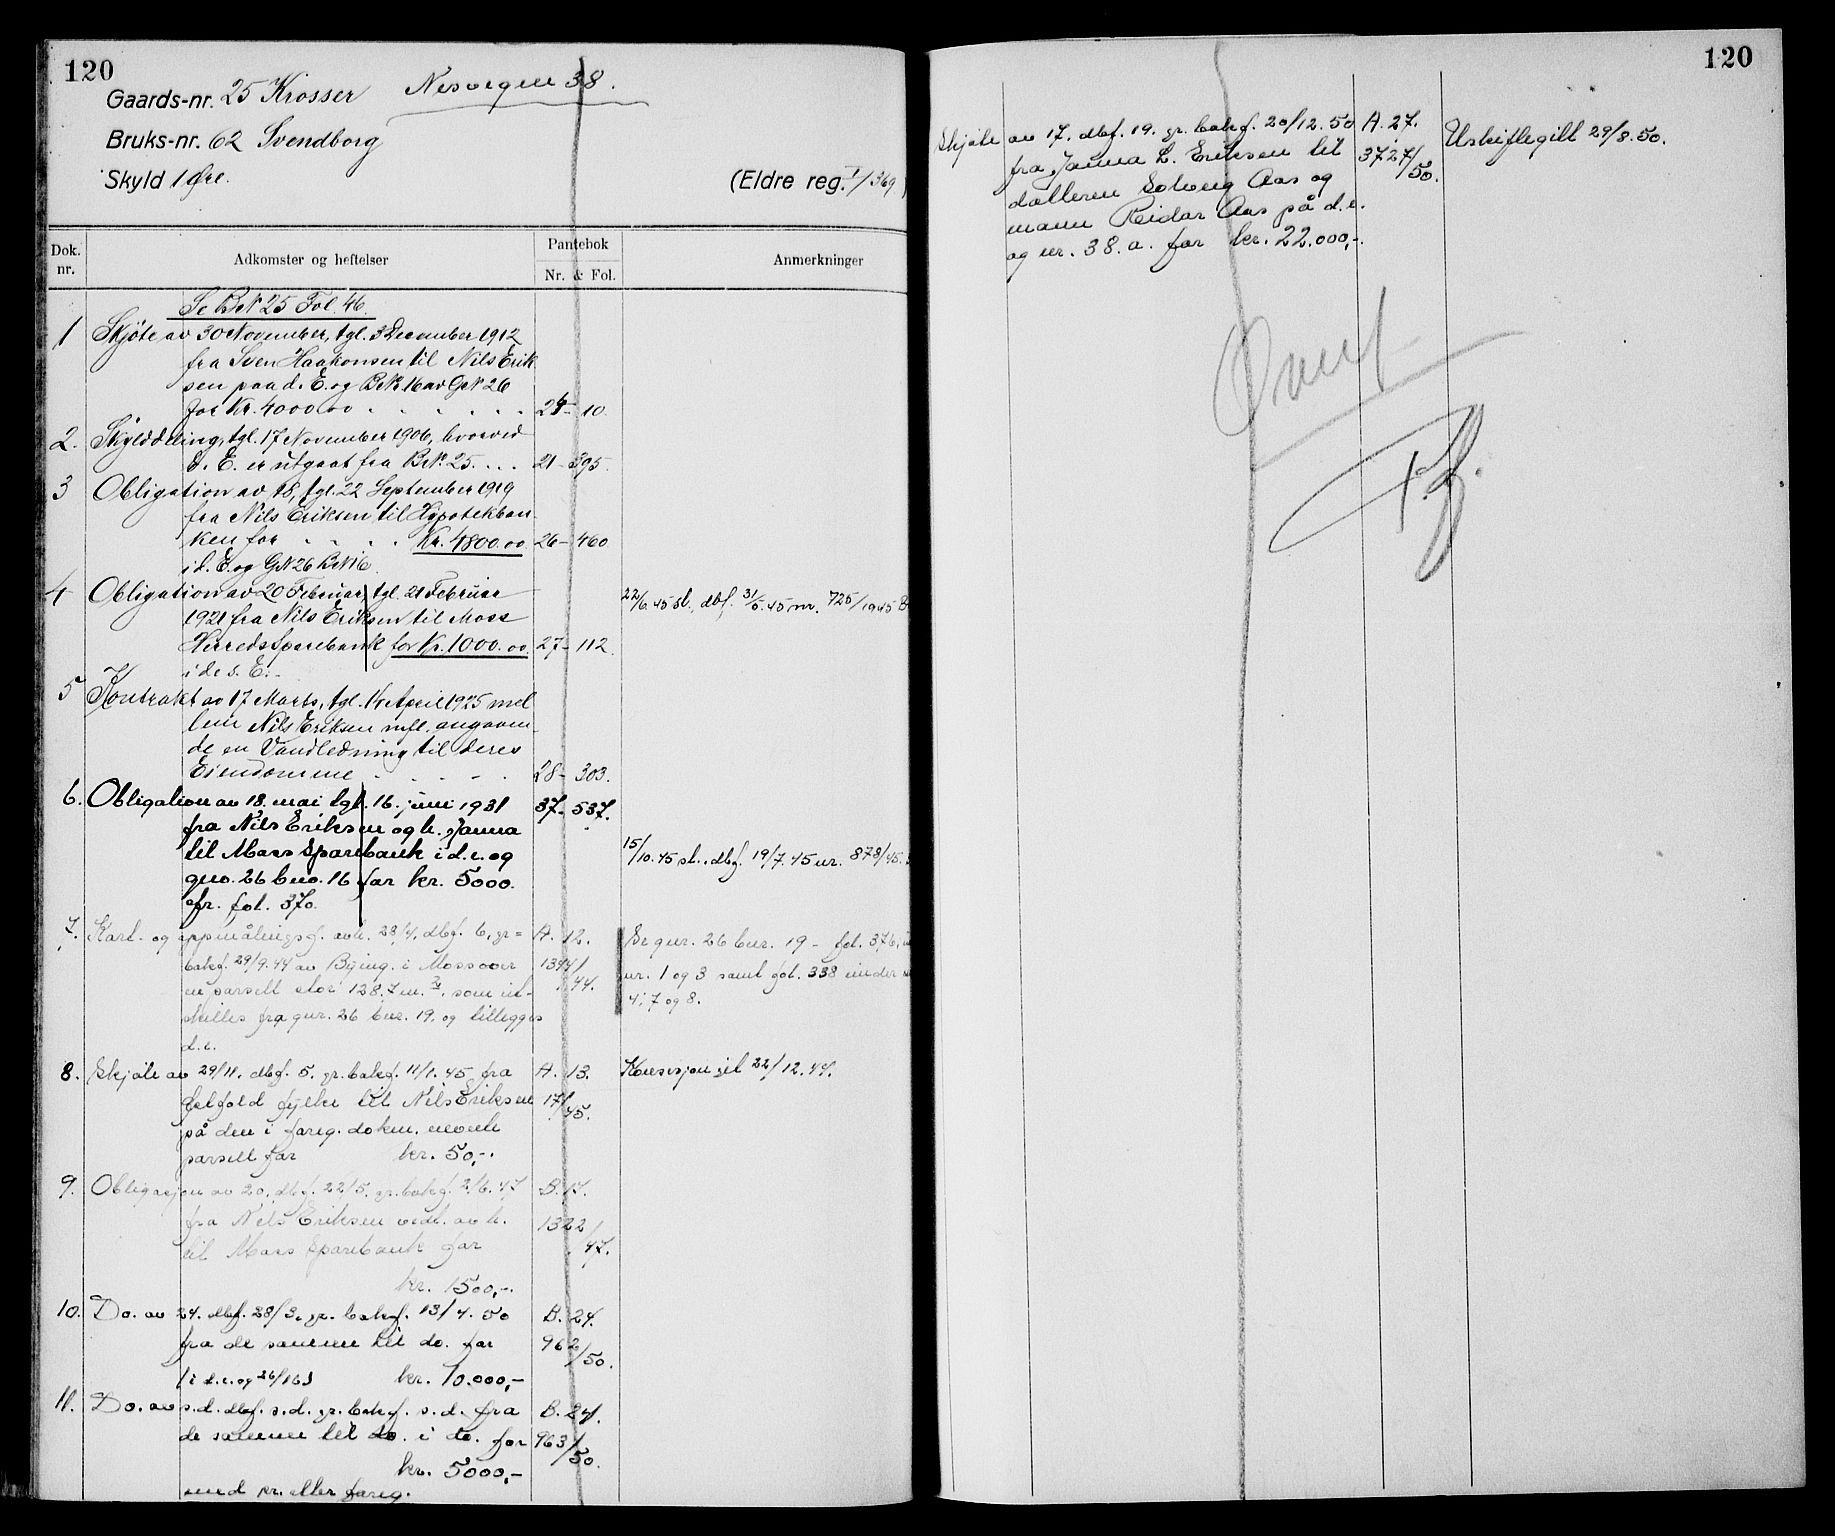 120
Gaards-nr. 25 Krosser Nesvegen 38.
Bruks-nr. 62 Svendborg
Skyld 1 Øre.
(Eldre reg. I/369)
Dok. nr.
Adkomster og heftelser
Pantebok
Nr. & Fol.
Anmerkninger
Se BrN 25 Fol. 46.
1 Skjöte av 30 November, tgl. 3 December 1912
fra Sven Haakonsen til Nils Erik
sen paa d. E. og BrN. 16 av GN 26
for Kr. 4000.00 . . . . . . 24 - 10.
2. Skylddeling, tgl. 17 November 1906, hvorved
d. E. er utgaat fra BrN. 25. . . . 21 - 395.
3 Obligation av 18, tgl. 22 September 1919
fra Nils Eriksen til Hypotekban
ken for . . . . Kr. 4800.00 26 - 460
i d. E. og GN 26 BrN 16
4 Obligation av 20 Februar, tgl. 21 Februar
1921 fra Nils Eriksen til Moss
Herredssparebank for Kr. 1000.00 27 - 112.
i de s. E. -
22/6.45 sl., dbf. 31/5.45 nr. 725/1945
5 Kontrakt av 17 Marts, tgl. 14 April 1925 mel
lem Nils Eriksen mfl. angaaen
de en Vandledning til deres
Eiendomme . . . . . 28 - 303.
6. Obligation av 18. mai tgl. 16. juni 1931 37 - 537.
fra Nils Eriksen og h. Janna
til Moss Sparebank i d. e. og
gno. 26 bno. 16 for kr. 5000.
jfr. fol. 370.
15/10.45 sl., dbf. 19/7.45 nr. 878/45.
7. Kart- og oppmålingsf. avh. 28/4, dbf. 6, gr= A. 12.
bokf. 29/9.44 av Bying. i Moss over 1344/44.
en parsell stor 128.7 m.2, som ut-
skilles fra gnr. 26 bnr. 19. og tillegges
d. e.
Se gnr. 26 bnr. 19 - fol. 376,
nr. 1 og 3 samt fol. 338 under
4, 7 og 8.
8. Skjöte av 29/11. dbf. 5. gr. bokf. 11/1.45 fra A. 13.
Østfold fylke til Nils Eriksen 171/45.
på den i foreg. dokm. nevnte
parsell for kr. 50,-.
Konsesjon git 22/12.44.
9. Obligasjon av 20. dbf. 22/5. gr. bokf. 2/6.47 B. 17.
fra Nils Eriksen vedt. av h. 1322/47.
til Moss Sparebank for
kr. 1500,-.
10. Do. av 24. dbf. 28/3. gr. bokf. 13/4.50 B. 24.
fra de samme til do. for 962/50.
(i d.e. og 26/16) kr. 10.000,-
11. Do. av s.d. dbf. s.d. gr. bokf. s.d. fra B. 24.
de samme til do. i do. for 963/50.
kr. 5000,-
med pr. etter foreg.
120
Skjöte av 17. dbf. 19. gr. bokf. 20/12.50 A. 27.
fra Janna L. Eriksen til 3727/50.
datteren Solveig Aas og
mann Reidar Aas på d. e.
og nr. 38. a. for kr. 22.000,-.
Uskiftegitt 29/8.50.